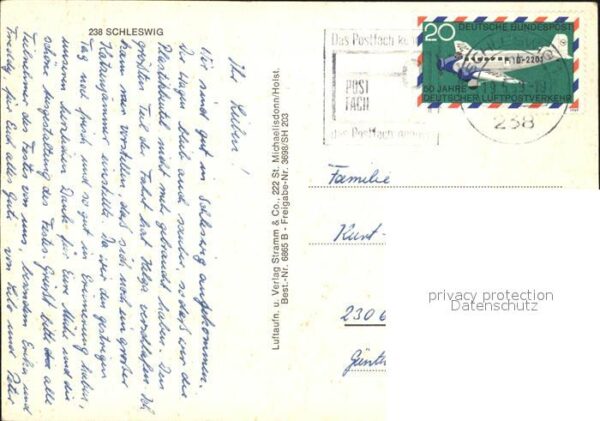 238 SCHLESWIG
Ihr Lieben!
Wir sind gut in Schleswig angekommen.
Der Wagen blieb auch sauber, so daß wir die
Plastiktüte nicht mehr gebraucht haben. Den
größten Teil der Fahrt hat Helga verschlafen. Ich
kann mir vorstellen, daß sich noch ein großer
Katzenjammer einstellte. Da wir den gestrigen
Tag noch frisch und so gut in Erinnerung haben,
unseren herzlichen Dank für Eure Mühe und die
schöne Ausgestaltung des Festes. Grüßt bitte alle
Teilnehmer des Festes von uns, besonders Erika und
Freddy. Für Euch alles Gute von und Peter
Luftaufn. u. Verlag Stramm & Co., 222 St. Michaelisdonn/Holst.
Best.-Nr. 6865 B - Freigabe-Nr. 3698/SH 203
Das Postfach
POST
FACH
das Postfach
20 DEUTSCHE BUNDESPOST
50 JAHRE
DEUTSCHER LUFTPOSTVERKEHR
238
Familie
Kurt-
2306
Günth
privacy protection
Datenschutz